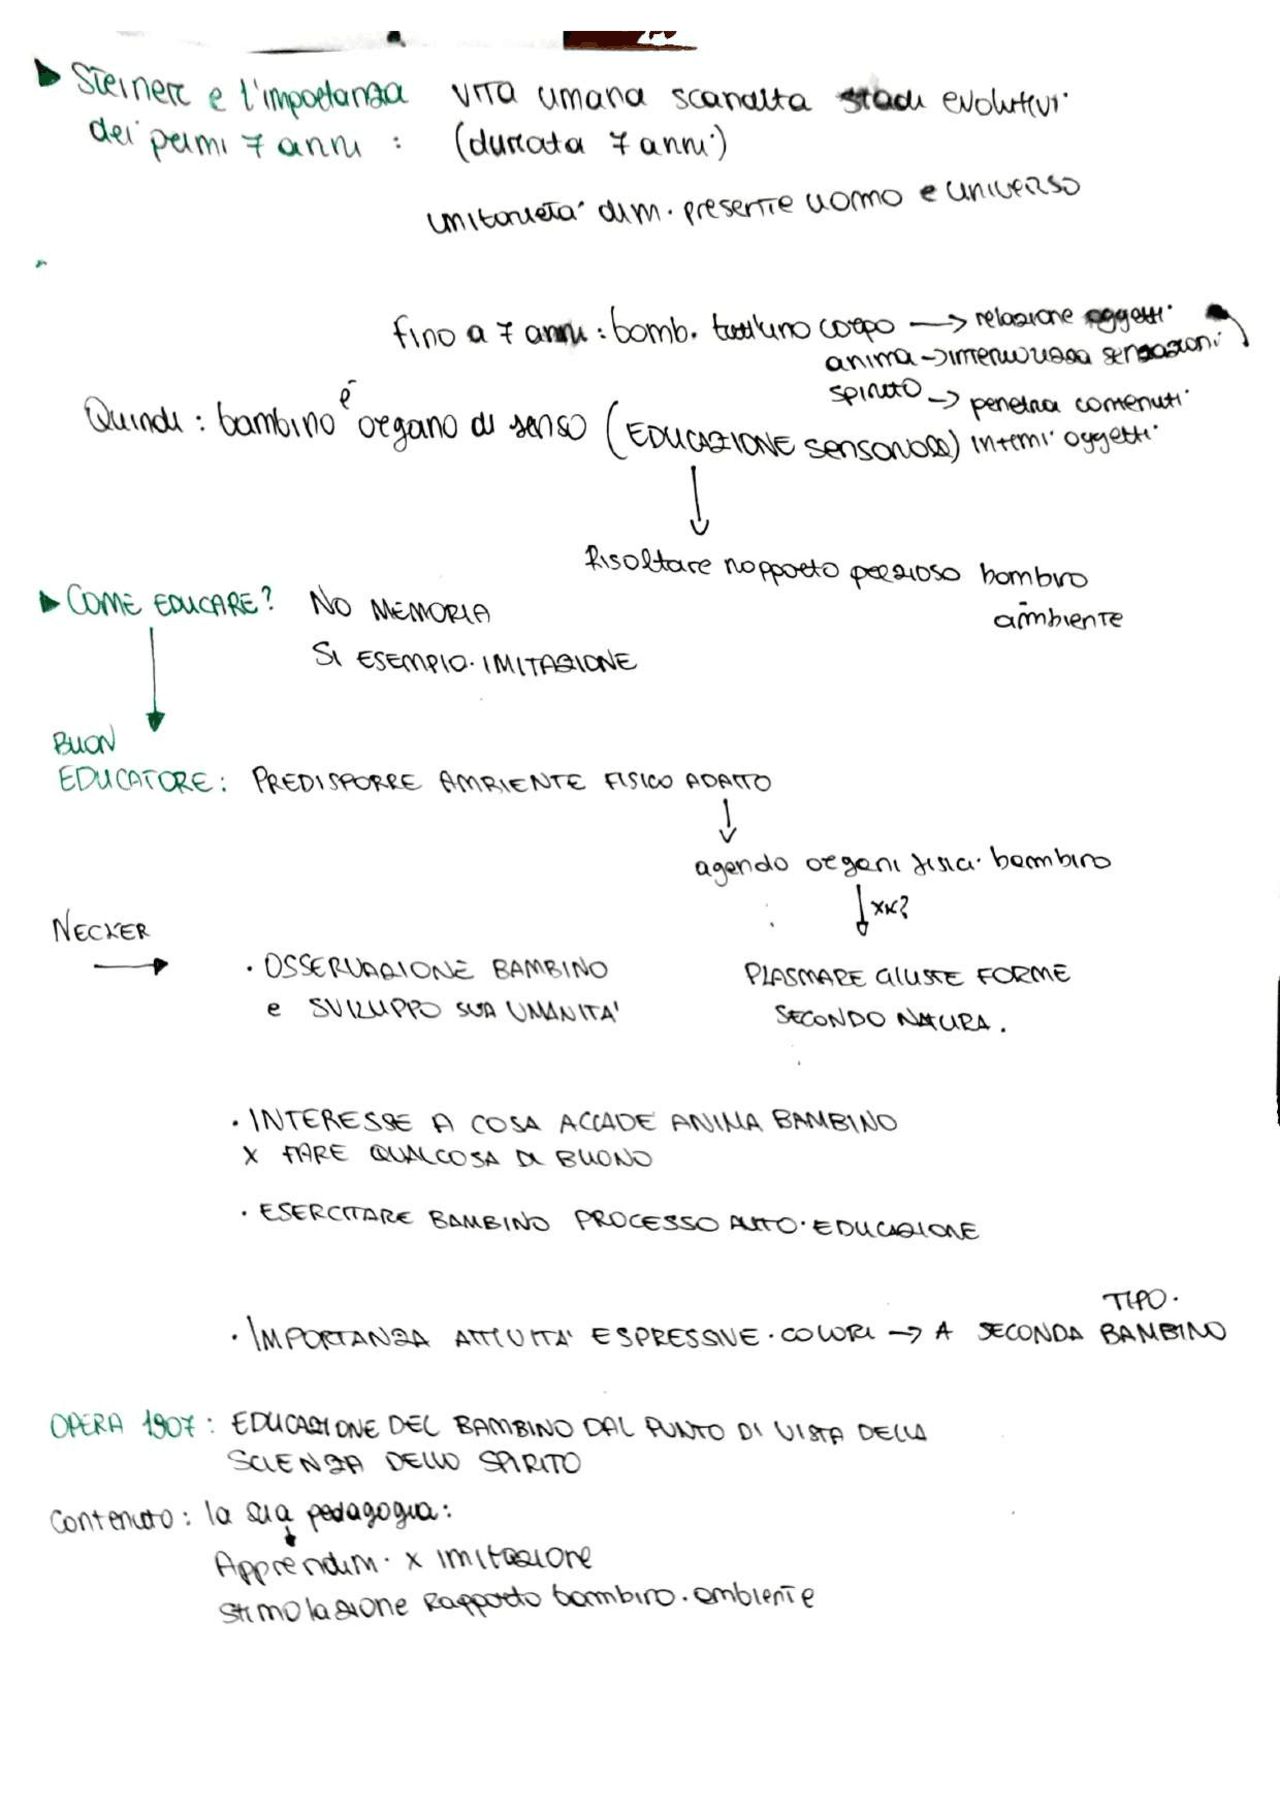 Steiner e l'importanza vita umana scandita stadi evolutivi
dei primi 7 anni : (durata 7 anni)
unitarietà dim. presente uomo e universo
fino a 7 anni : bamb. tutt'uno corpo → relazione oggetti
anima → interiorizza sensazioni
spirito → penetra contenuti
Quindi : bambino è organo di senso (EDUCAZIONE sensoriale) interni oggetti
Risaltare rapporto prezioso bambino
ambiente
COME EDUCARE? NO MEMORIA
SI ESEMPIO. IMITAZIONE
BUON
EDUCATORE : PREDISPORRE AMBIENTE FISICO ADATTO
agendo organi fisici bambino
xk?
NECKER
→ · OSSERVAZIONE BAMBINO PLASMARE GIUSTE FORME
e SVILUPPO SUA UMANITA' SECONDO NATURA.
· INTERESSE A COSA ACCADE ANIMA BAMBINO
x FARE QUALCOSA DI BUONO
· ESERCITARE BAMBINO PROCESSO AUTO-EDUCAZIONE
TIPO.
· IMPORTANZA ATTIVITA' ESPRESSIVE. COLORI → A SECONDA BAMBINO
OPERA 1907 : EDUCAZIONE DEL BAMBINO DAL PUNTO DI VISTA DELLA
SCIENZA DELLO SPIRITO
Contenuto : la sua pedagogia :
Apprendim. x imitazione
stimolazione Rapporto bambino.ambiente